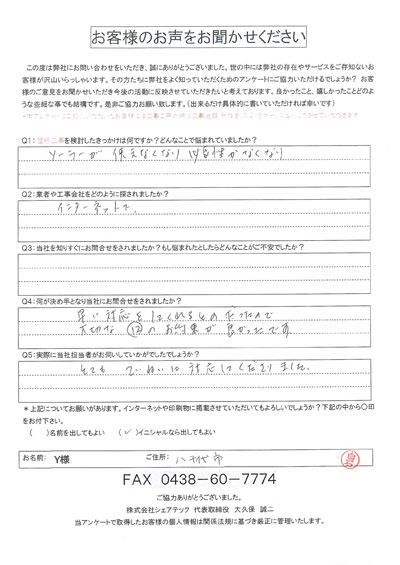 お客様のお声をお聞かせください
この度は弊社にお問い合わせをいただき、誠にありがとうございました。世の中には弊社の存在やサービスをご存知ないお
客様が沢山いらっしゃいます。その方たちに弊社をよく知っていただくためのアンケートにご協力いただけるでしょうか? お客
様のご意見をお聞かせいただき今後の活動に反映させていただきたいと考えております。良かったこと、嬉しかったことどのよ
うな些細な事でも結構です。是非ご協力お願い致します。(出来るだけ具体的に書いていただければ幸いです)
Q1:を検討したきっかけは何ですか?どんなことで悩まれていましたか?
ソーラーが 使えなくなり 必要性がなくなり
Q2:業者や工事会社をどのように探されましたか?
インターネットで、
Q3:当社を知りすぐにお問合せをされましたか?もし悩まれたとしたらどんなことがご不安でしたか?
Q4:何が決め手となり当社にお問合せをされましたか?
早い対応をしてくれるとの だったので
大切な のお約束が 良かったです
Q5:実際に当社担当者がお伺いしていかがでしたでしょうか?
とても ていねいに対応してくださりました。
*上記についてお願いがあります。インターネットや印刷物に掲載させていただいてもよろしいでしょうか?下記の中から〇印
をお付下さい。
( )名前を出してもよい (✓)イニシャルなら出してもよい
お名前: Y様 ご住所: 八千代市
FAX 0438-60-7774
ご協力ありがとうございました。
株式会社シェアテック 代表取締役 大久保 誠二
当アンケートで取得したお客様の個人情報は関係法規に基づき厳正に管理いたします。